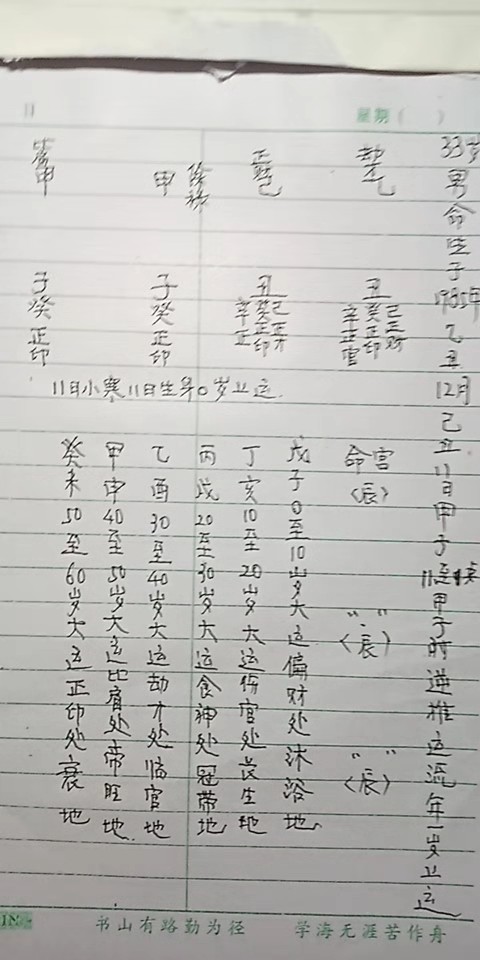 星期（ ）
33岁男命生于1985年乙丑12月己丑11日甲子11至1点甲子时逆推运流年一岁上运
劫乙
正财己
甲
甲
丑
己正财
癸正印
辛正官
丑
己正才
癸正印
辛正
子癸正印
子癸正印
11日小寒11日生等0岁上运
命宫〈辰〉
〃〈辰〉
〃〈辰〉
戊子0至10岁大运偏财处沐浴地
丁亥10至20岁大运伤官处长生地
丙戌20至30岁大运食神处冠带地
乙酉30至40岁大运劫才处临官地
甲申40至50岁大运比肩处帝旺地
癸未50至60岁大运正印处衰地
书山有路勤为径 学海无涯苦作舟